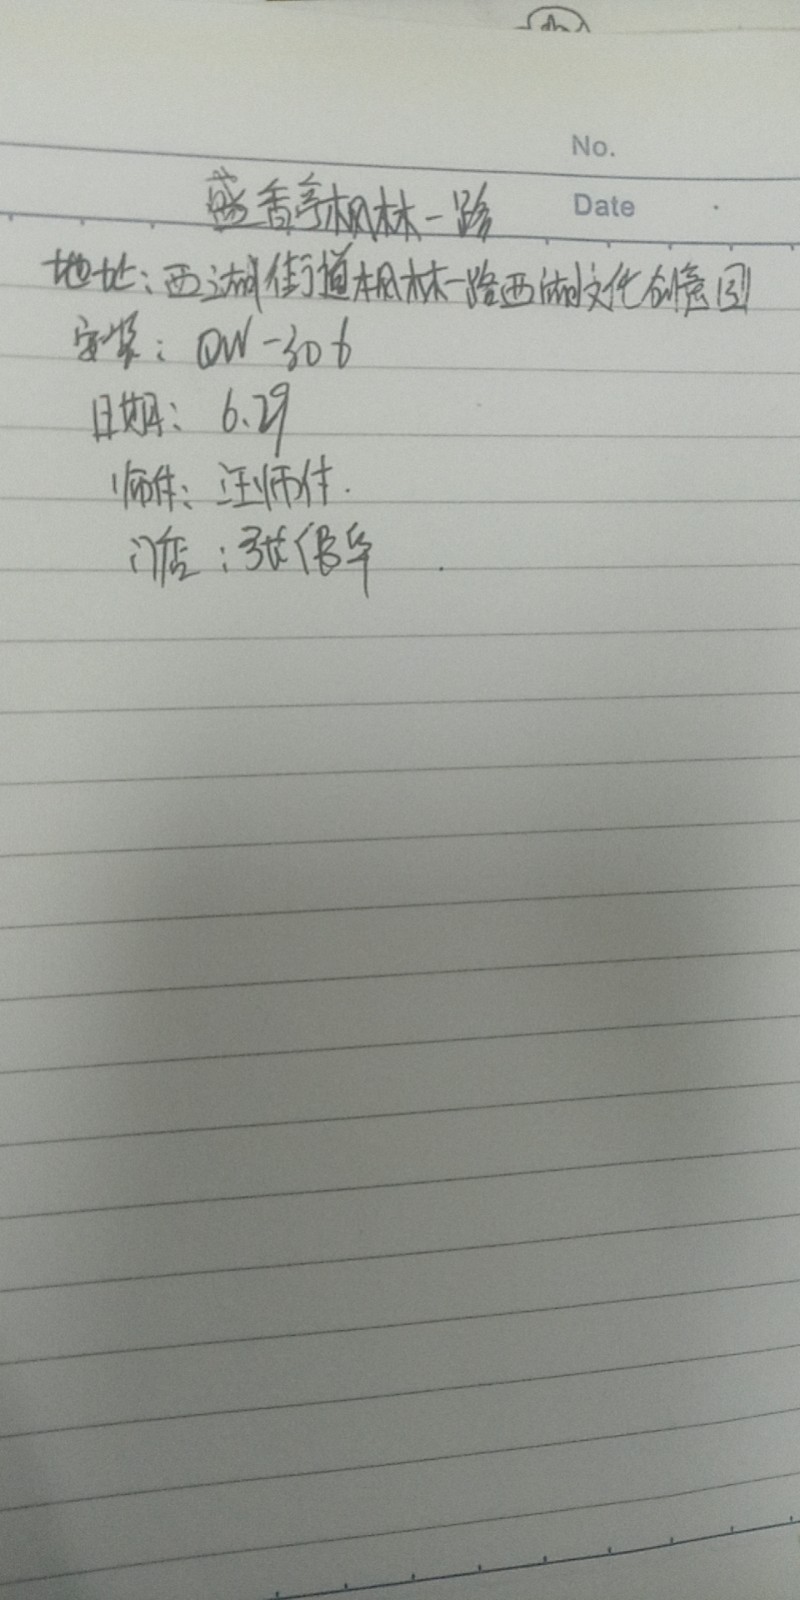 No.
Date
盛香亭枫林一路
地址：西湖街道枫林一路西湖文化创意园
安装：QW-306
日期：6.29
师傅：汪师傅.
门店：张保华